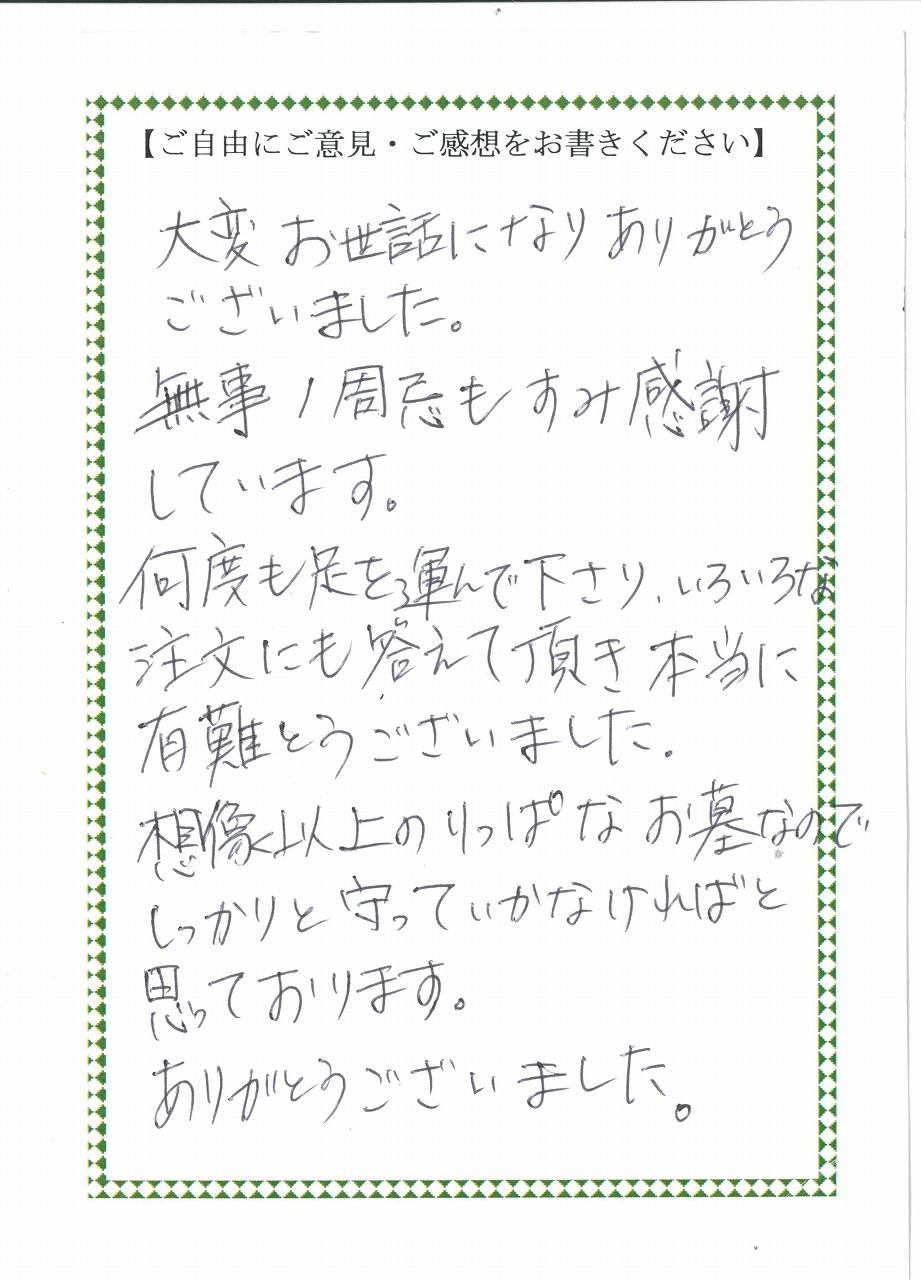 【ご自由にご意見・ご感想をお書きください】
大変お世話になりありがとう
ございました。
無事1周忌もすみ感謝
しています。
何度も足を運んで下さり、いろいろな
注文にも答えて頂き本当に
有難とうございました。
想像以上のりっぱなお墓なので
しっかりと守っていかなければと
思っております。
ありがとうございました。